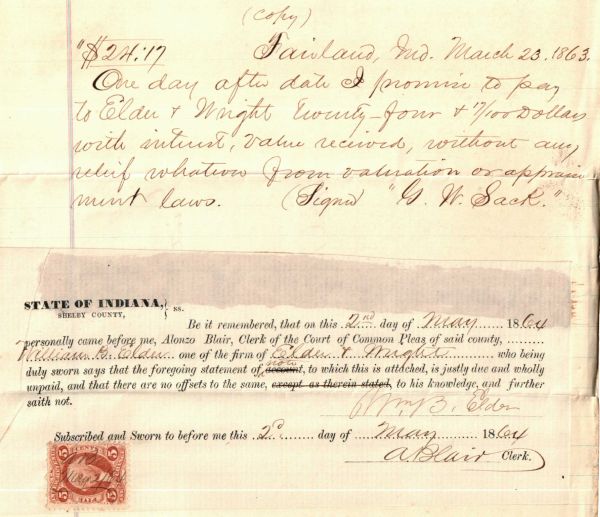 (Copy)
"$24.17 Fairland, Ind. March 23, 1863.
One day after date I promise to pay
to Elder & Wright Twenty-four & 17/100 Dollars
with interest, value received, without any
relief whatever from valuation or appraise
ment laws. (Signed "G. W. Sack."
STATE OF INDIANA, } ss.
SHELBY COUNTY,
Be it remembered, that on this 2nd day of May 1864
personally came before me, Alonzo Blair, Clerk of the Court of Common Pleas of said county,
William B. Elder one of the firm of Elder & Wright who being
note
duly sworn says that the foregoing statement of account, to which this is attached, is justly due and wholly
unpaid, and that there are no offsets to the same, except as therein stated, to his knowledge, and further
saith not. Wm. B. Elder
Subscribed and Sworn to before me this 2d day of May 1864
A Blair Clerk.
5 5
5 5